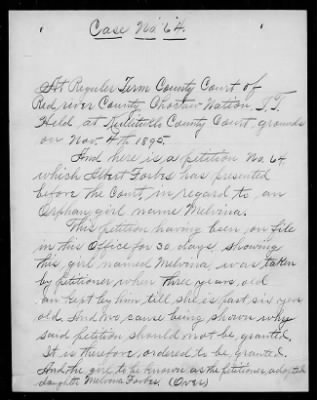 Case No 64.
At Reguler Term County Court of
Red river County, Choctaw Nation, I.T.
Held, at Kullituklo County Court, grounds
on Nov. 4th 1895.
And here is a petition No. 64
which Abert Forbs has presented
before the Court, in regard to an
Orphan girl name Melvina.
This petition having been on file
in this Office for 30 days, showing
this girl named Melvina, was taken
by petitioner when three years old
an Kept by him till she is past six yers
old. And no cause being shown why
said petition should not be granted.
It is therefore ordered to be granted.
And the girl to be known as the petitioner adopted
daughter Melvina Forbs. (Over)